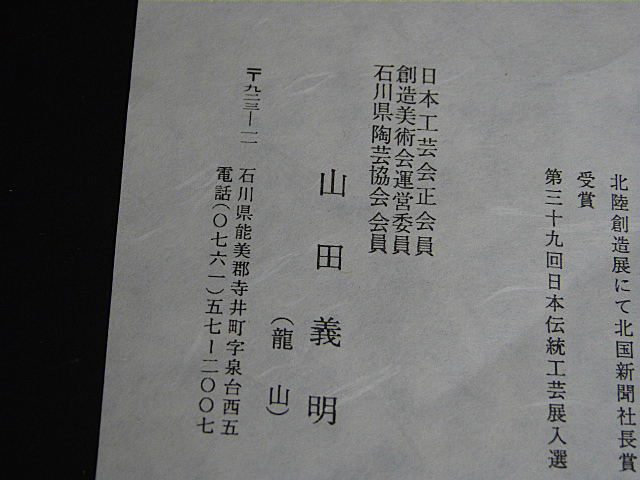 北陸創造展にて北国新聞社長賞
受賞
第三十九回日本伝統工芸展入選
日本工芸会正会員
創造美術会運営委員
石川県陶芸協会会員
山田義明
(龍山)
〒九二三―一一
石川県能美郡寺井町字泉台西五
電話(〇七六一)五七―二〇〇七